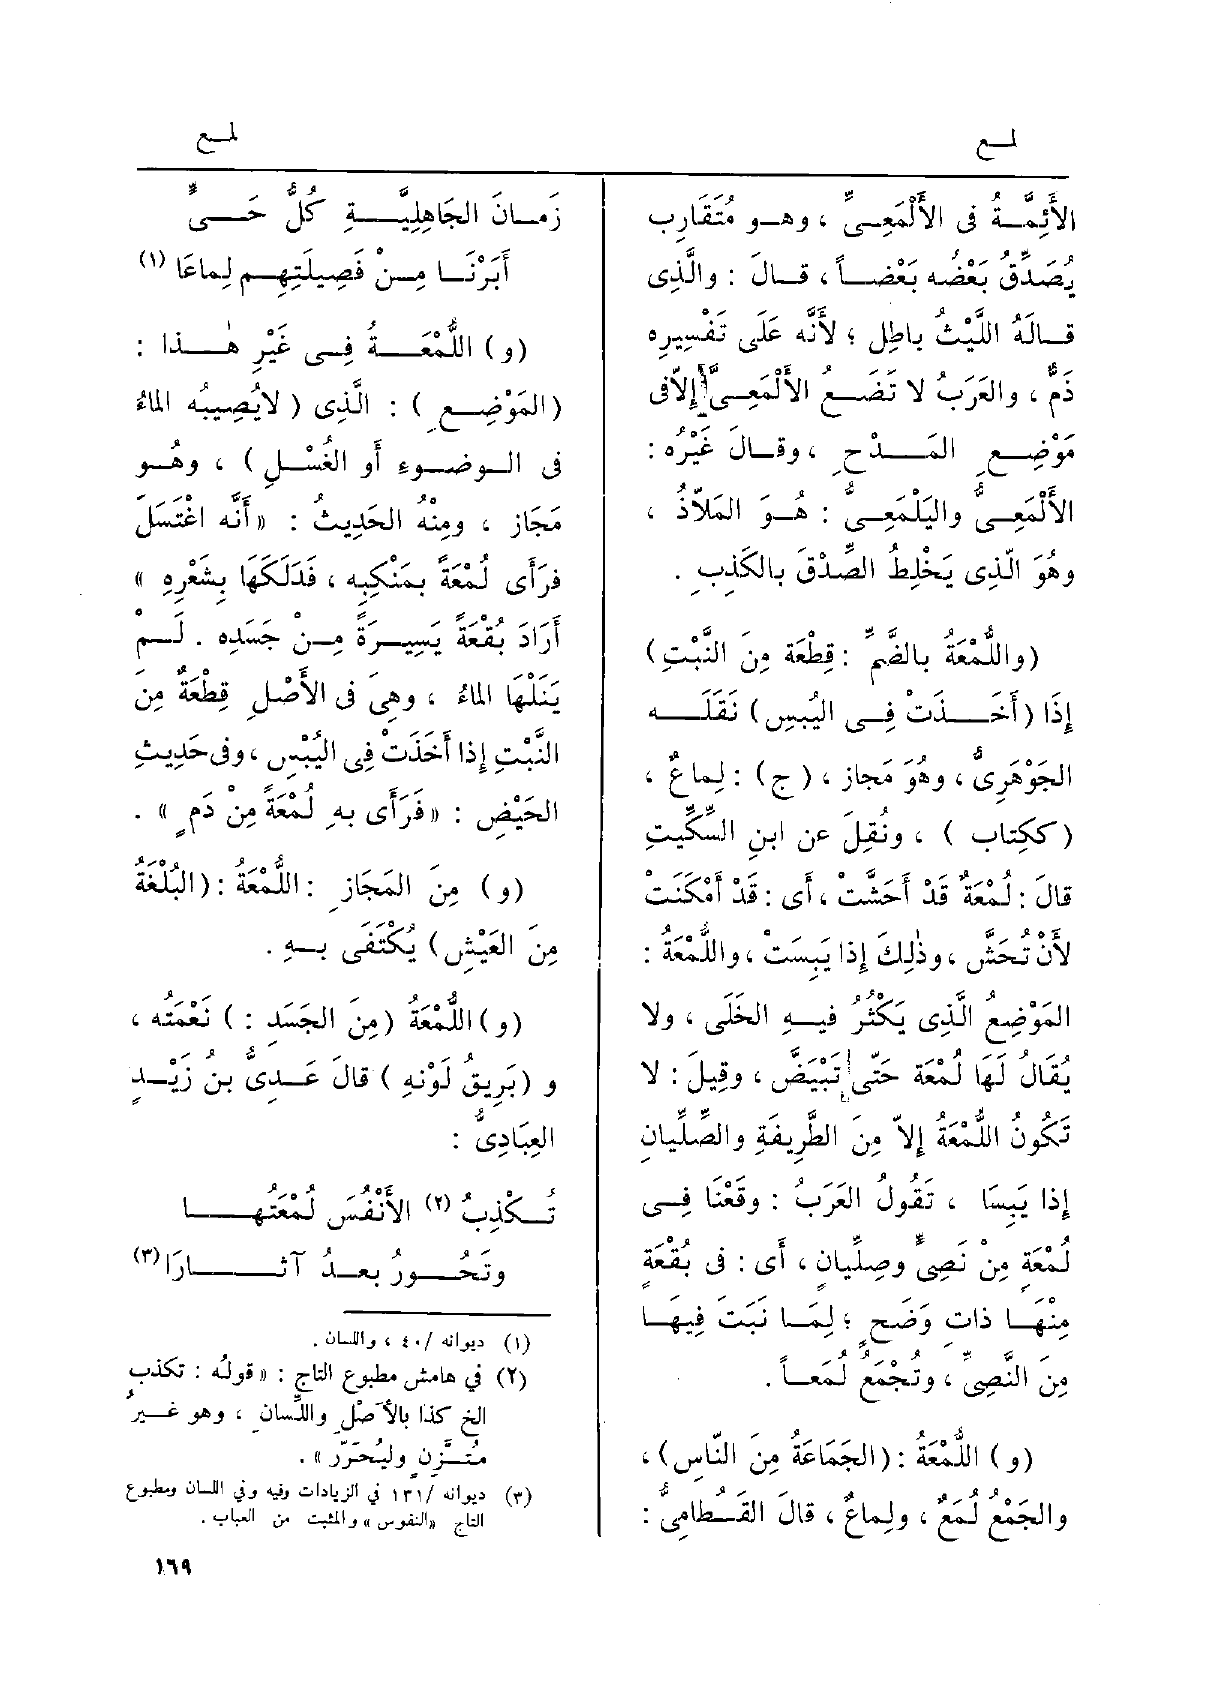 لمع
لمع
الأَئِمَّةُ فى الأَلْمَعِىِّ ، وهو مُتَقَارِب
يُصَدِّقُ بَعْضُه بَعْضاً ، قالَ : والَّذِى
قالَهُ اللَّيْثُ باطِل ؛ لأَنَّه عَلَى تَفْسِيرِه
ذَمٌّ ، والعَرَبُ لا تَضَعُ الأَلْمَعِىَّ إِلاّ فى
مَوْضِعِ المَدْحِ ، وقالَ غَيْرُه :
الأَلْمَعِىُّ واليَلْمَعِىُّ : هُوَ المَلاّذُ ،
وهُوَ الَّذِى يَخْلِطُ الصِّدْقَ بالكَذِبِ .
(واللُّمْعَةُ بالضَّمِّ : قِطْعَة مِنَ النَّبْتِ)
إِذَا (أَخَذَتْ فِى اليُبسِ) نَقَلَه
الجَوْهَرِىُّ ، وهُوَ مَجاز ، (ج) : لِماعٌ ،
(ككِتاب) ، ونُقِلَ عن ابنِ السِّكِّيتِ
قالَ : لُمْعَةٌ قَدْ أَحَشَّتْ ، أى : قَدْ أَمْكَنَتْ
لأَنْ تُحَشَّ ، وذٰلِكَ إِذا يَبِسَتْ ، واللُّمْعَةُ :
المَوْضِعُ الَّذِى يَكْثُرُ فيهِ الخَلَى ، ولا
يُقَالُ لَهَا لُمْعَة حَتَّى تَبْيَضَّ ، وقِيلَ : لا
تَكُونُ اللُّمْعَةُ إِلاّ مِنَ الطَّرِيفَةِ والصِّلِّيانِ
إِذا يَبِسَا ، تَقُولُ العَرَبُ : وقَعْنَا فِى
لُمْعَةٍ مِنْ نَصِىٍّ وصِلِّيانٍ ، أى : فى بُقْعَةٍ
مِنْهَا ذاتِ وَضَحٍ ؛ لِمَا نَبَتَ فِيهَا
مِنَ النَّصِىِّ ، وتُجْمَعُ لُمَعاً .
(و) اللُّمْعَةُ : (الجَمَاعَةُ مِنَ النّاسِ) ،
والجَمْعُ لُمَعٌ ، ولِماعٌ ، قالَ القُطامِىُّ :
زَمانَ الجَاهِلِيَّةِ كُلُّ حَىٍّ
أَبَرْنَا مِنْ فَصِيلَتِهِم لِماعَا (١)
(و) اللُّمْعَةُ فِى غَيْرِ هٰذا :
(المَوْضِعِ) : الَّذِى (لايُصِيبُه الماءُ
فى الوضوءِ أو الغُسْلِ) ، وهُو
مَجَاز ، ومِنْهُ الحَدِيثُ : «أَنَّه اغْتَسَلَ
فرَأَى لُمْعَةً بمَنْكِبِه ، فَدَلَكَهَا بشَعْرِهِ »
أَرَادَ بُقْعَةً يَسِيرَةً مِنْ جَسَدِه . لَمْ
يَنَلْهَا الماءُ ، وهِىَ فى الأَصْلِ قِطْعَةٌ مِنَ
النَّبْتِ إِذا أَخَذَتْ فِى اليُبْسِ ، وفى حَدِيثِ
الحَيْضِ : «فَرَأَى بهِ لُمْعَةً مِنْ دَمٍ » .
(و) مِنَ المَجَازِ : اللُّمْعَةُ : (البُلْغَةُ
مِنَ العَيْشِ) يُكْتَفَى بهِ .
(و) اللُّمْعَةُ (مِنَ الجَسَدِ :) نَعْمَتُه ،
و (بَرِيقُ لَوْنِهِ) قالَ عَدِىُّ بن زَيْدٍ
العِبَادِىُّ :
تُكْذِبُ (٢) الأَنْفُسَ لُمْعَتُها
وتَحُورُ بعدُ آثارَا (٣)
(١) ديوانه /٤٠ ، واللسان .
(٢) في هامش مطبوع التاج : «قولُه : تكذب
الخ كذا بالأصْلِ واللِّسانِ ، وهو غيرُ
مُتَّزِنٍ وليُحَرّر » .
(٣) ديوانه /١٣١ في الزيادات وفيه وفي اللسان ومطبوع
التاج «النفوس» والمثبت من العباب .
١٦٩